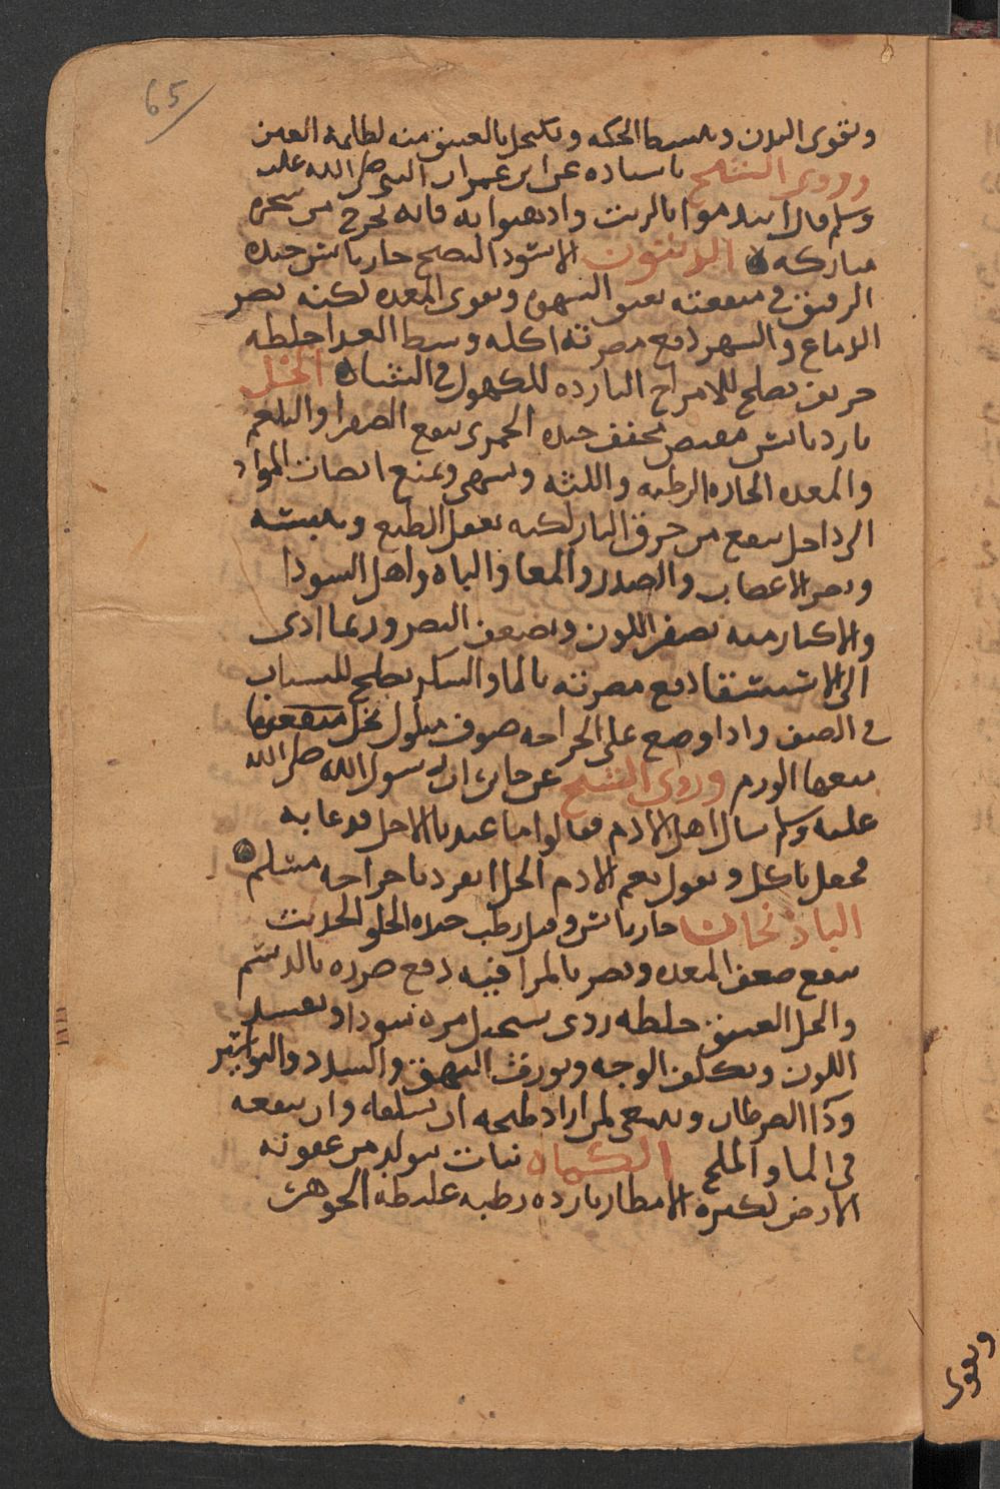 65
ويقوى البدن وينبسط الحركه ويكتحل بالعتيق منه لظلمة العين
وروى الشيخ باسناده عن ابن عمر ان النبي صلى الله عليه
وسلم قال ايتدموا بالزيت وادهنوا به فانه يخرج من شجرة
مباركه الزيتون الاسود النضيج حار يابس جيده
الرقيق في منفعته يفتق الشهوه ويقوى المعده لكنه يضر
الدماغ والسهر دفع مضرته اكله وسط الغدا خلطه
حريف يصلح للامزاج البارده للكهول في الشتاء الخل
بارد يابس مقبض مجفف جيده الخمرى ينفع الصفرا والبلغم
والمعده الحاره الرطبه واللثه ويشهى ويمنع انصاب المواد
الى داخل ينفع من حرق النار لكنه يعقل الطبع ويبسه
ويضر الاعصاب والصدر والمعا والباه واهل السودا
والاكثار منه يصفر اللون ويضعف البصر وربما ادى
الى الاستسقا دفع مضرته بالما والسكر يصلح للشباب
في الصيف واذا وضع على الجراحه صوف مبلول بخل منفعتها
منعها الورم وروى الشيخ عن جابر ان رسول الله صلى الله
عليه وسلم سال اهله الادم فقالوا ما عندنا الا خل فدعا به
فجعل ياكل ويقول نعم الادم الخل انفرد باخراجه مسلم
الباذنجان حار يابس وقيل رطب جيده الحلو الحديث
ينفع ضعف المعده ويضر بالمراقيه دفع ضرره بالدسم
والخل العتيق خلطه ردى يستحيل مره سودا ويفسد
اللون ويكلف الوجه ويورث البهق والسدد والبواسير
وكذا السرطان وينبغى لمن اراد طبخه ان يسلقه وان ينقعه
في الما والملح الكماه نبات يتولد من عفونة
الارض لكثرة الامطار بارده رطبه غليظة الجوهر
ويقوى